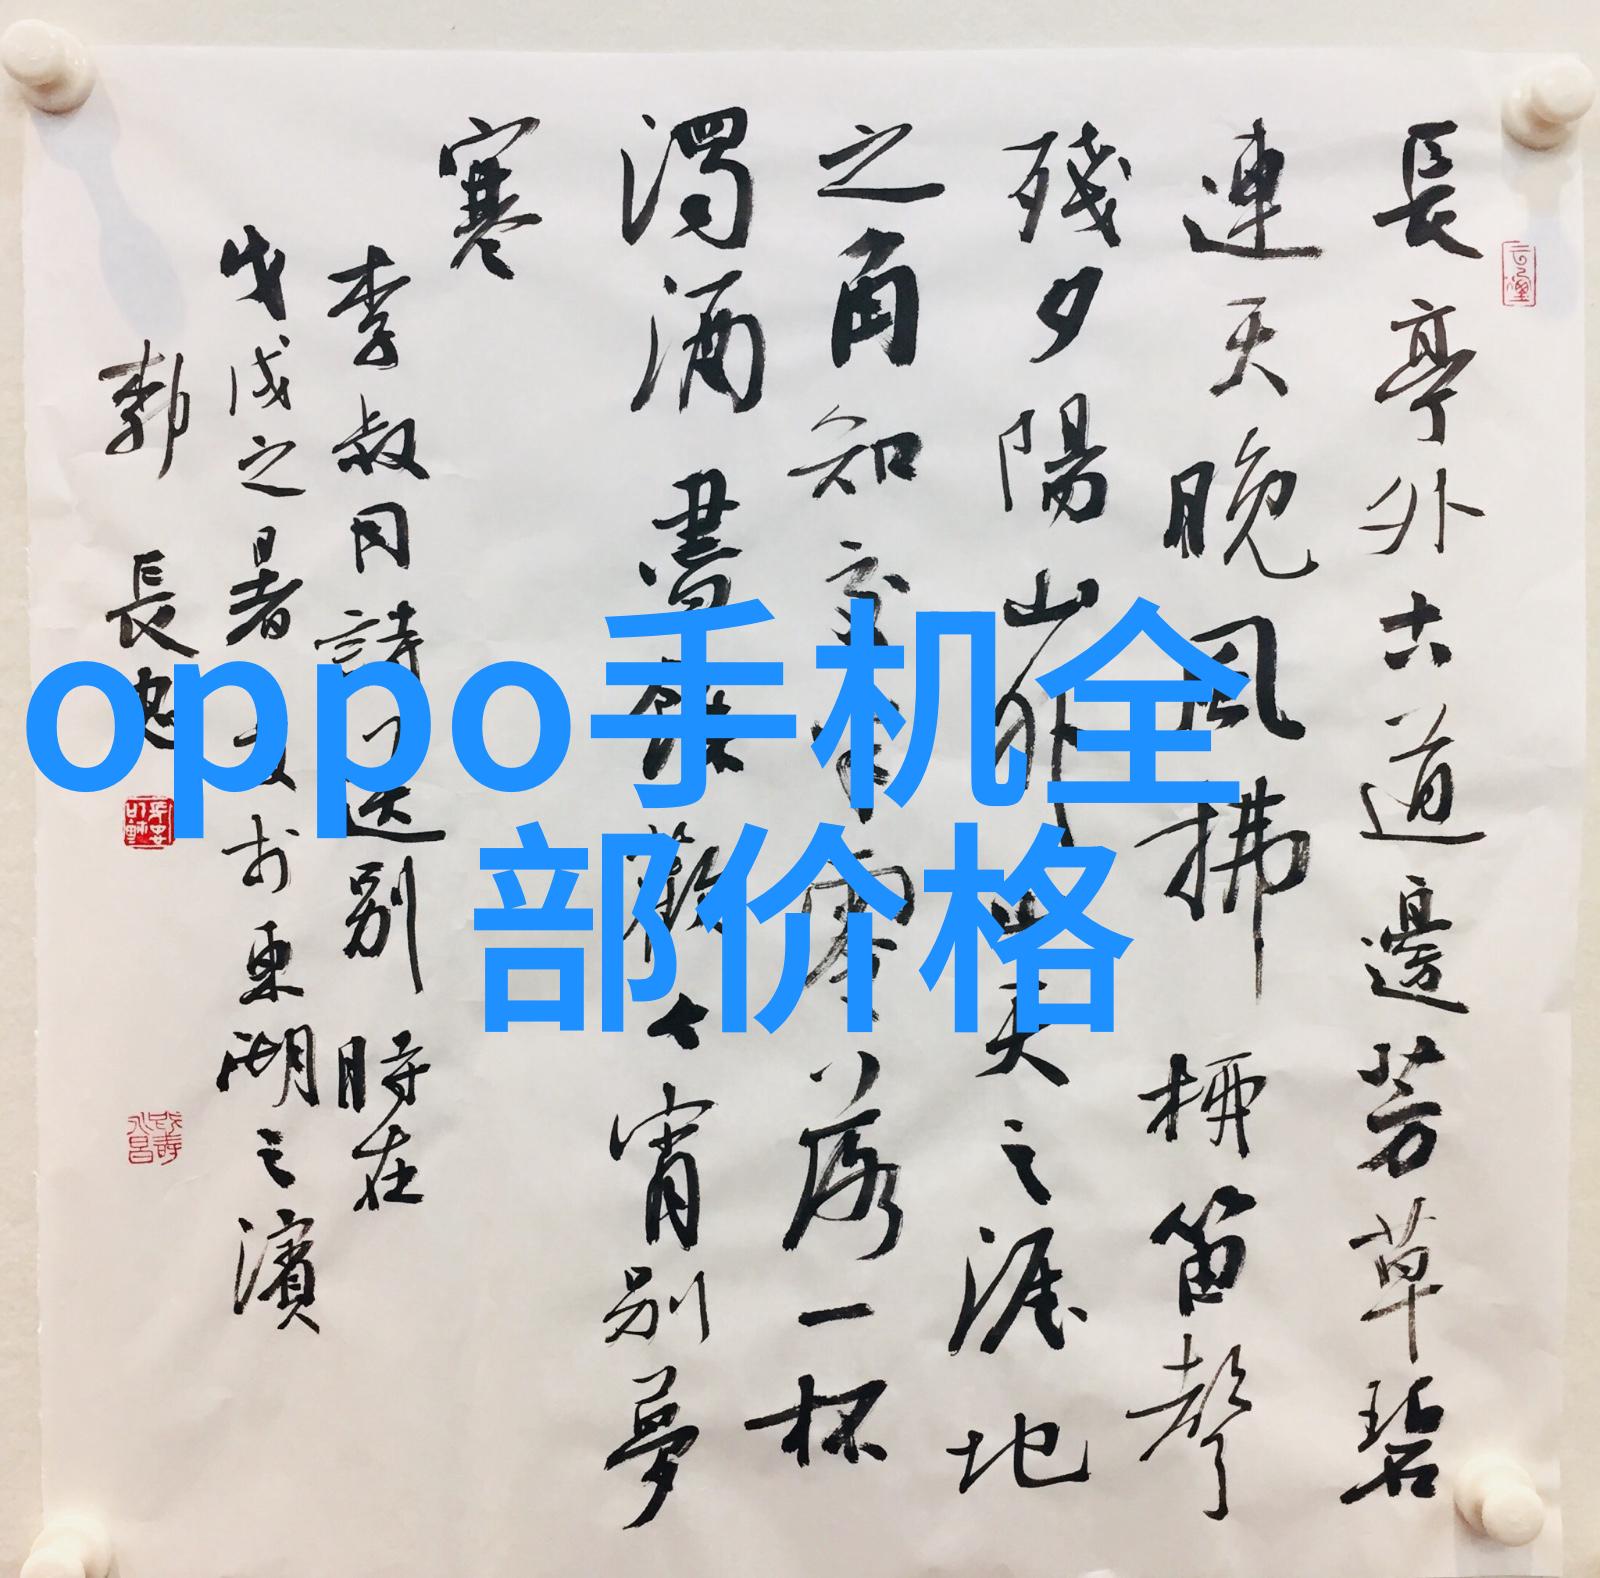 oppo手机全
部价格
長亭外古道邊芳草碧
連天晚風拂柳笛聲
殘夕陽山外山天之涯地
之角知交半零落一杯
濁酒盡餘歡今宵別夢
寒
李叔同詩送別 時在
戊戌之暑 於東湖之濱
長